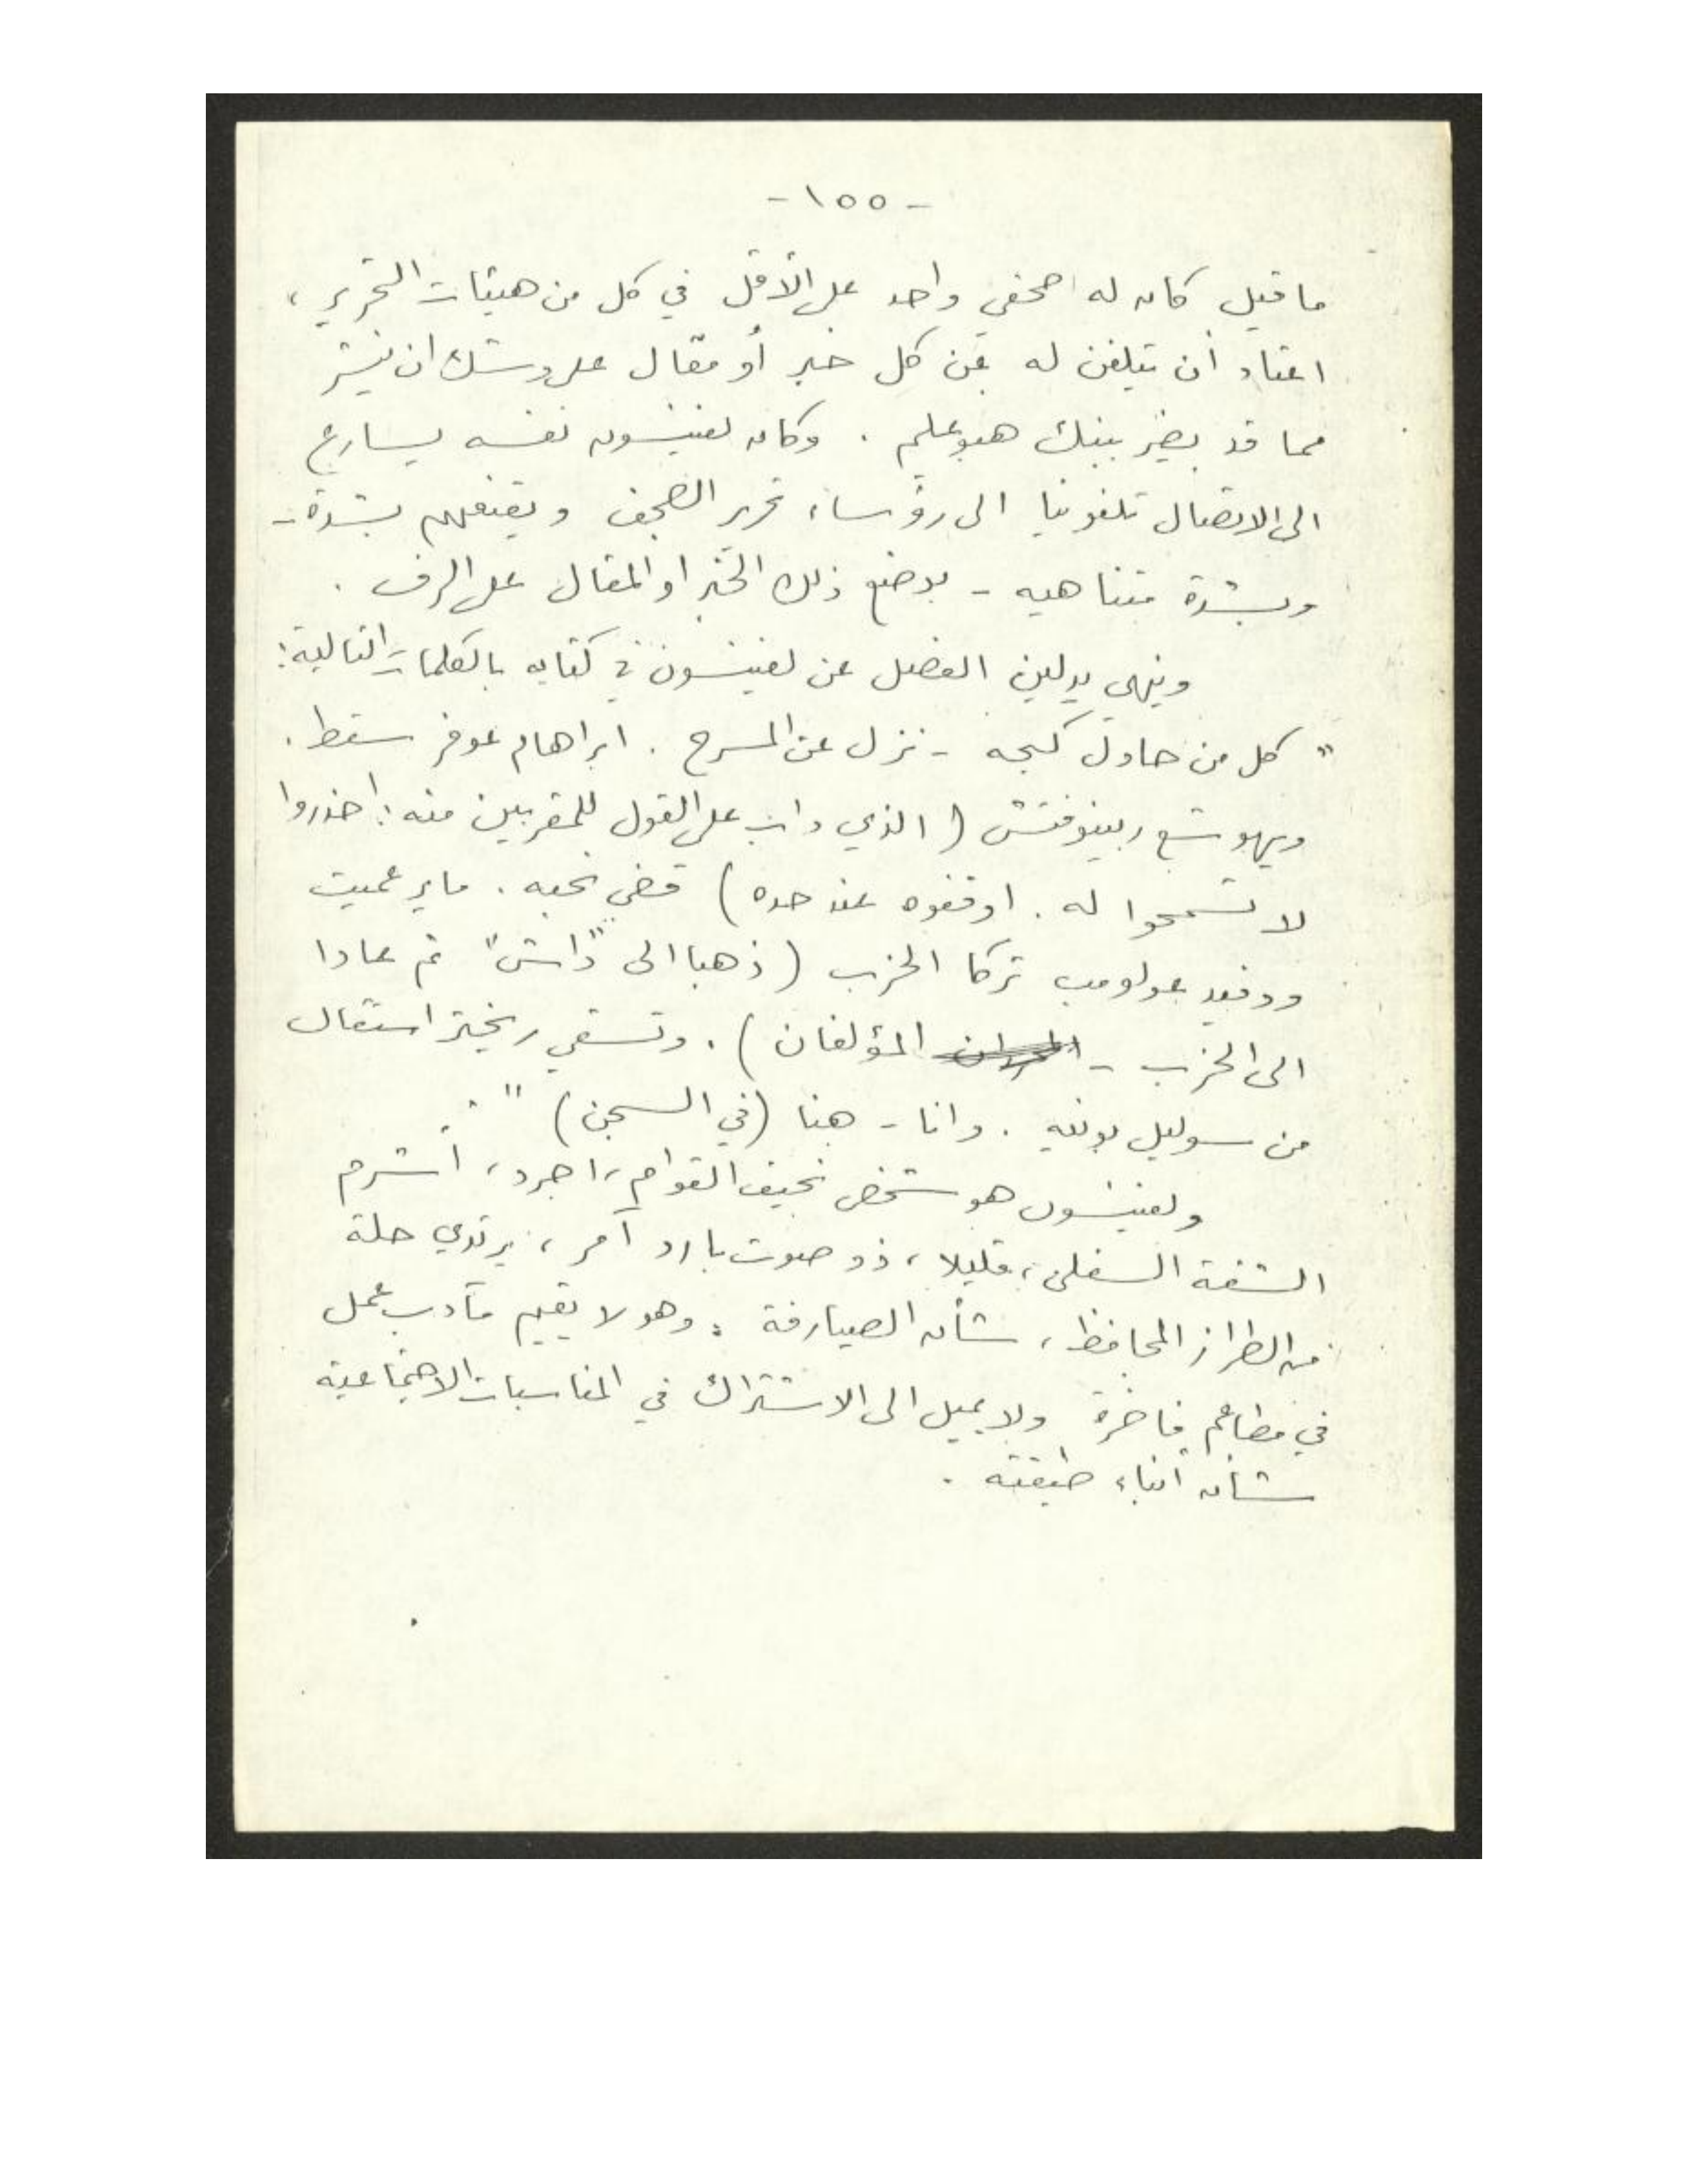 - ١٥٥ -
ما قيل كان له صحفي واحد على الأقل في كل من هيئات التحرير ،
اعتاد أن يتلفن له عن كل خبر أو مقال على وشك ان ينشر
مما قد يضر ببنك هبوعليم . وكان لفينسون نفسه يسارع
الى الاتصال تلفونيا الى رؤساء تحرير الصحف ويقنعهم بشدة -
وبشدة متناهيه - بوضع ذلك الخبر او المقال على الرف .
وينهي يدلين الفصل عن لفينسون في كتابه بالكلمات التالية :
" كل من حاول كبحه - نزل عن المسرح . ابراهام عوفر سقط .
ويهوشع ربينوفتش ( الذي داب على القول للمقربين منه : احذروا
لا تسمحوا له . اوقفوه عند حده ) قضى نحبه . ماير عميت
ودفيد جولومب تركا الحزب ( ذهبا الى "داش" ثم عادا
الى الحزب - المؤلفان ) . وتسفي ريختر استقال
من سوليل بونيه . وانا - هنا (في السجن) " .
ولفينسون هو شخص نحيف القوام ، اجرد ، أشرم
الشفة السفلى ، قليلا ، ذو صوت بارد آمر ، يرتدي حلة
من الطراز المحافظ ، شأن الصيارفة . وهو لا يقيم مآدب عمل
في مطاعم فاخرة ولا يميل الى الاشتراك في المناسبات الاجتماعية
شأن أبناء طبقته .